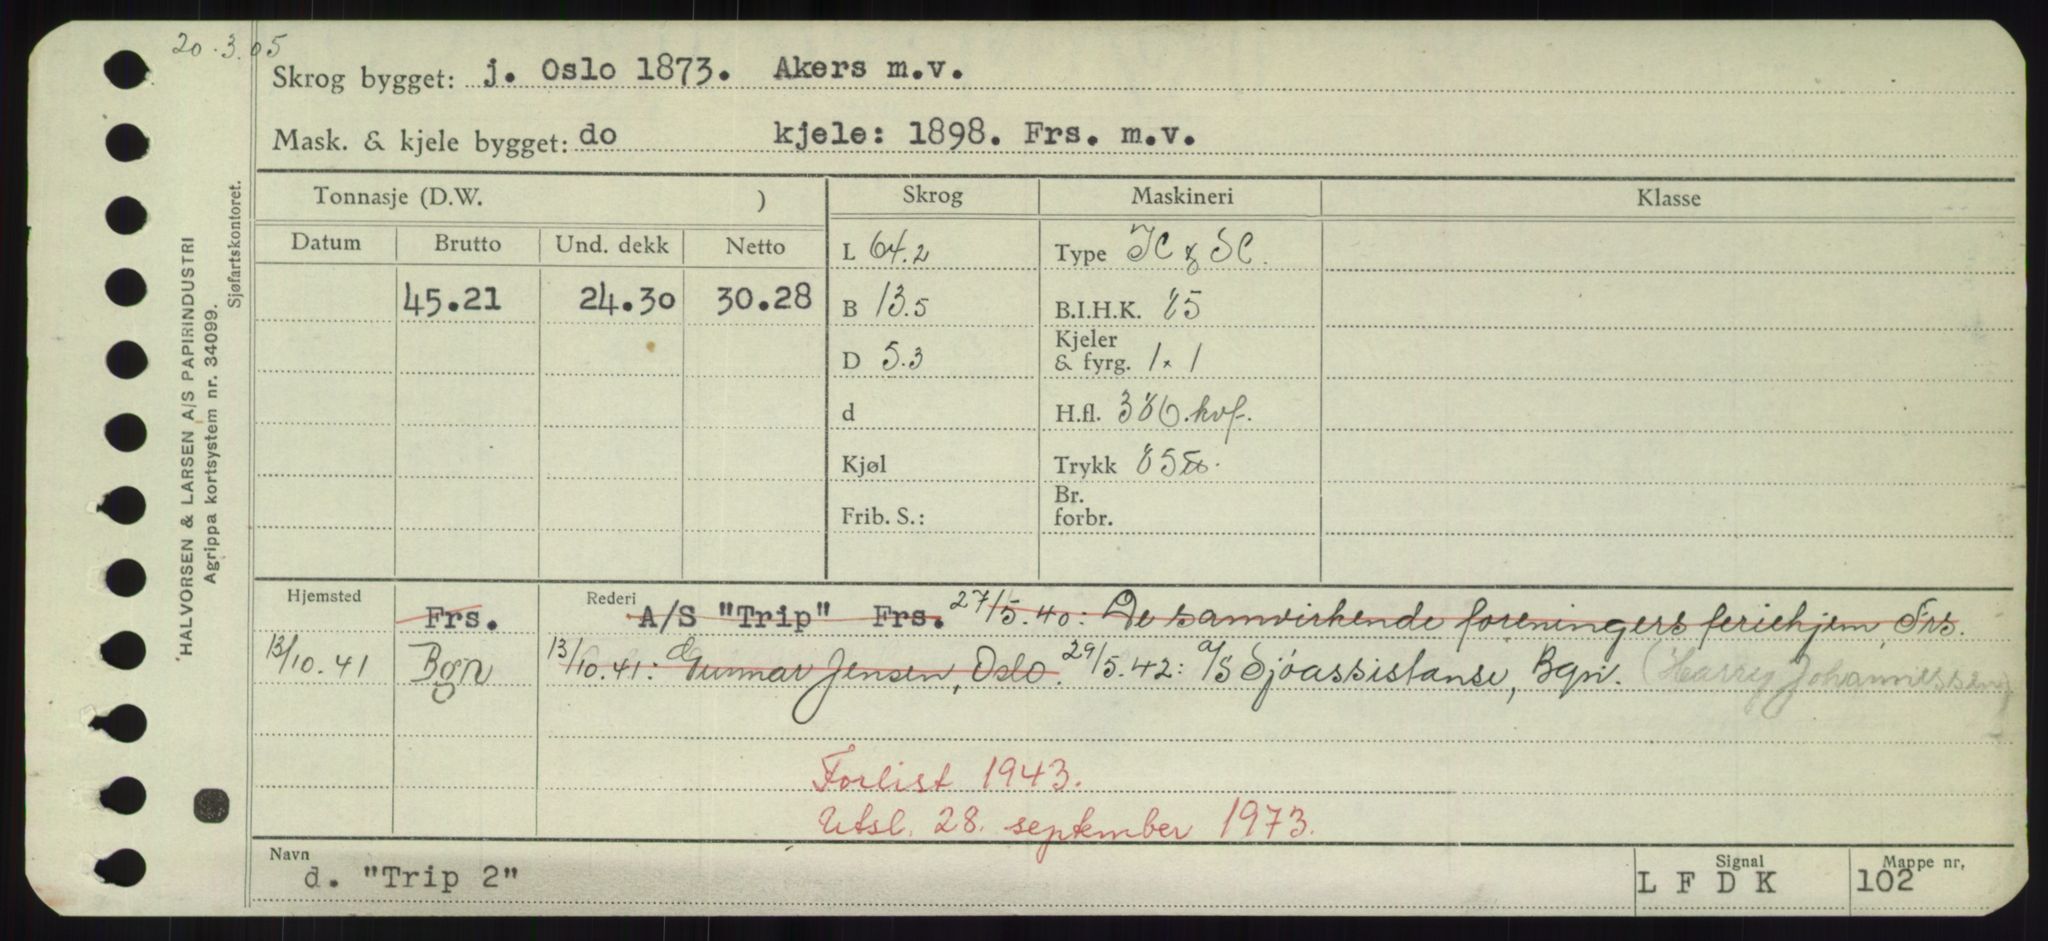 20.3.05
Skrog bygget: j. Oslo 1873. Akers m.v.
Mask. & kjele bygget: do kjele: 1898. Frs. m.v.
Tonnasje (D.W. ) Skrog Maskineri Klasse
Datum Brutto Und. dekk Netto
L 64.2 Type
45.21 24.30 30.28 B 13.5 B.I.H.K. 85
D 5.3 Kjeler & fyrg. 1 × 1
d H.fl. 380.kvf.
Kjøl Trykk 85
Frib. S.: Br. forbr.
Hjemsted Frs. Rederi A/S "Trip" Frs. 27/5.40: De samvirkende foreningers feriehjem, Frs.
13/10.41 Bgn 13/10.41: Gunnar Jensen, Oslo. 29/5.42: A/S Sjøassistanse, Bgn. (Harry Johannessen)
Forlist 1943.
Utsl. 28. september 1973.
Navn d. "Trip 2" Signal L F D K Mappe nr. 102
HALVORSEN & LARSEN A/S PAPIRINDUSTRI
Agrippa kortsystem nr. 34099.
Sjøfartskontoret.